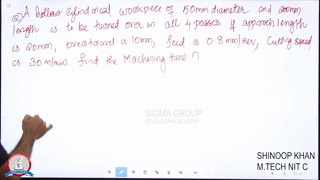 Q) A hollow cylindrical workpiece of 150mm diameter and 200mm
length is to be turned over in all 4 passes if approach length
is 20mm, overtravel is 10mm, feed is 0.8mm/rev, Cutting speed
is 30m/min find the Machining time ?
SIGMA GROUP
EDUCATIONAL ACADEMY
SHINOOP KHAN
M.TECH NIT C